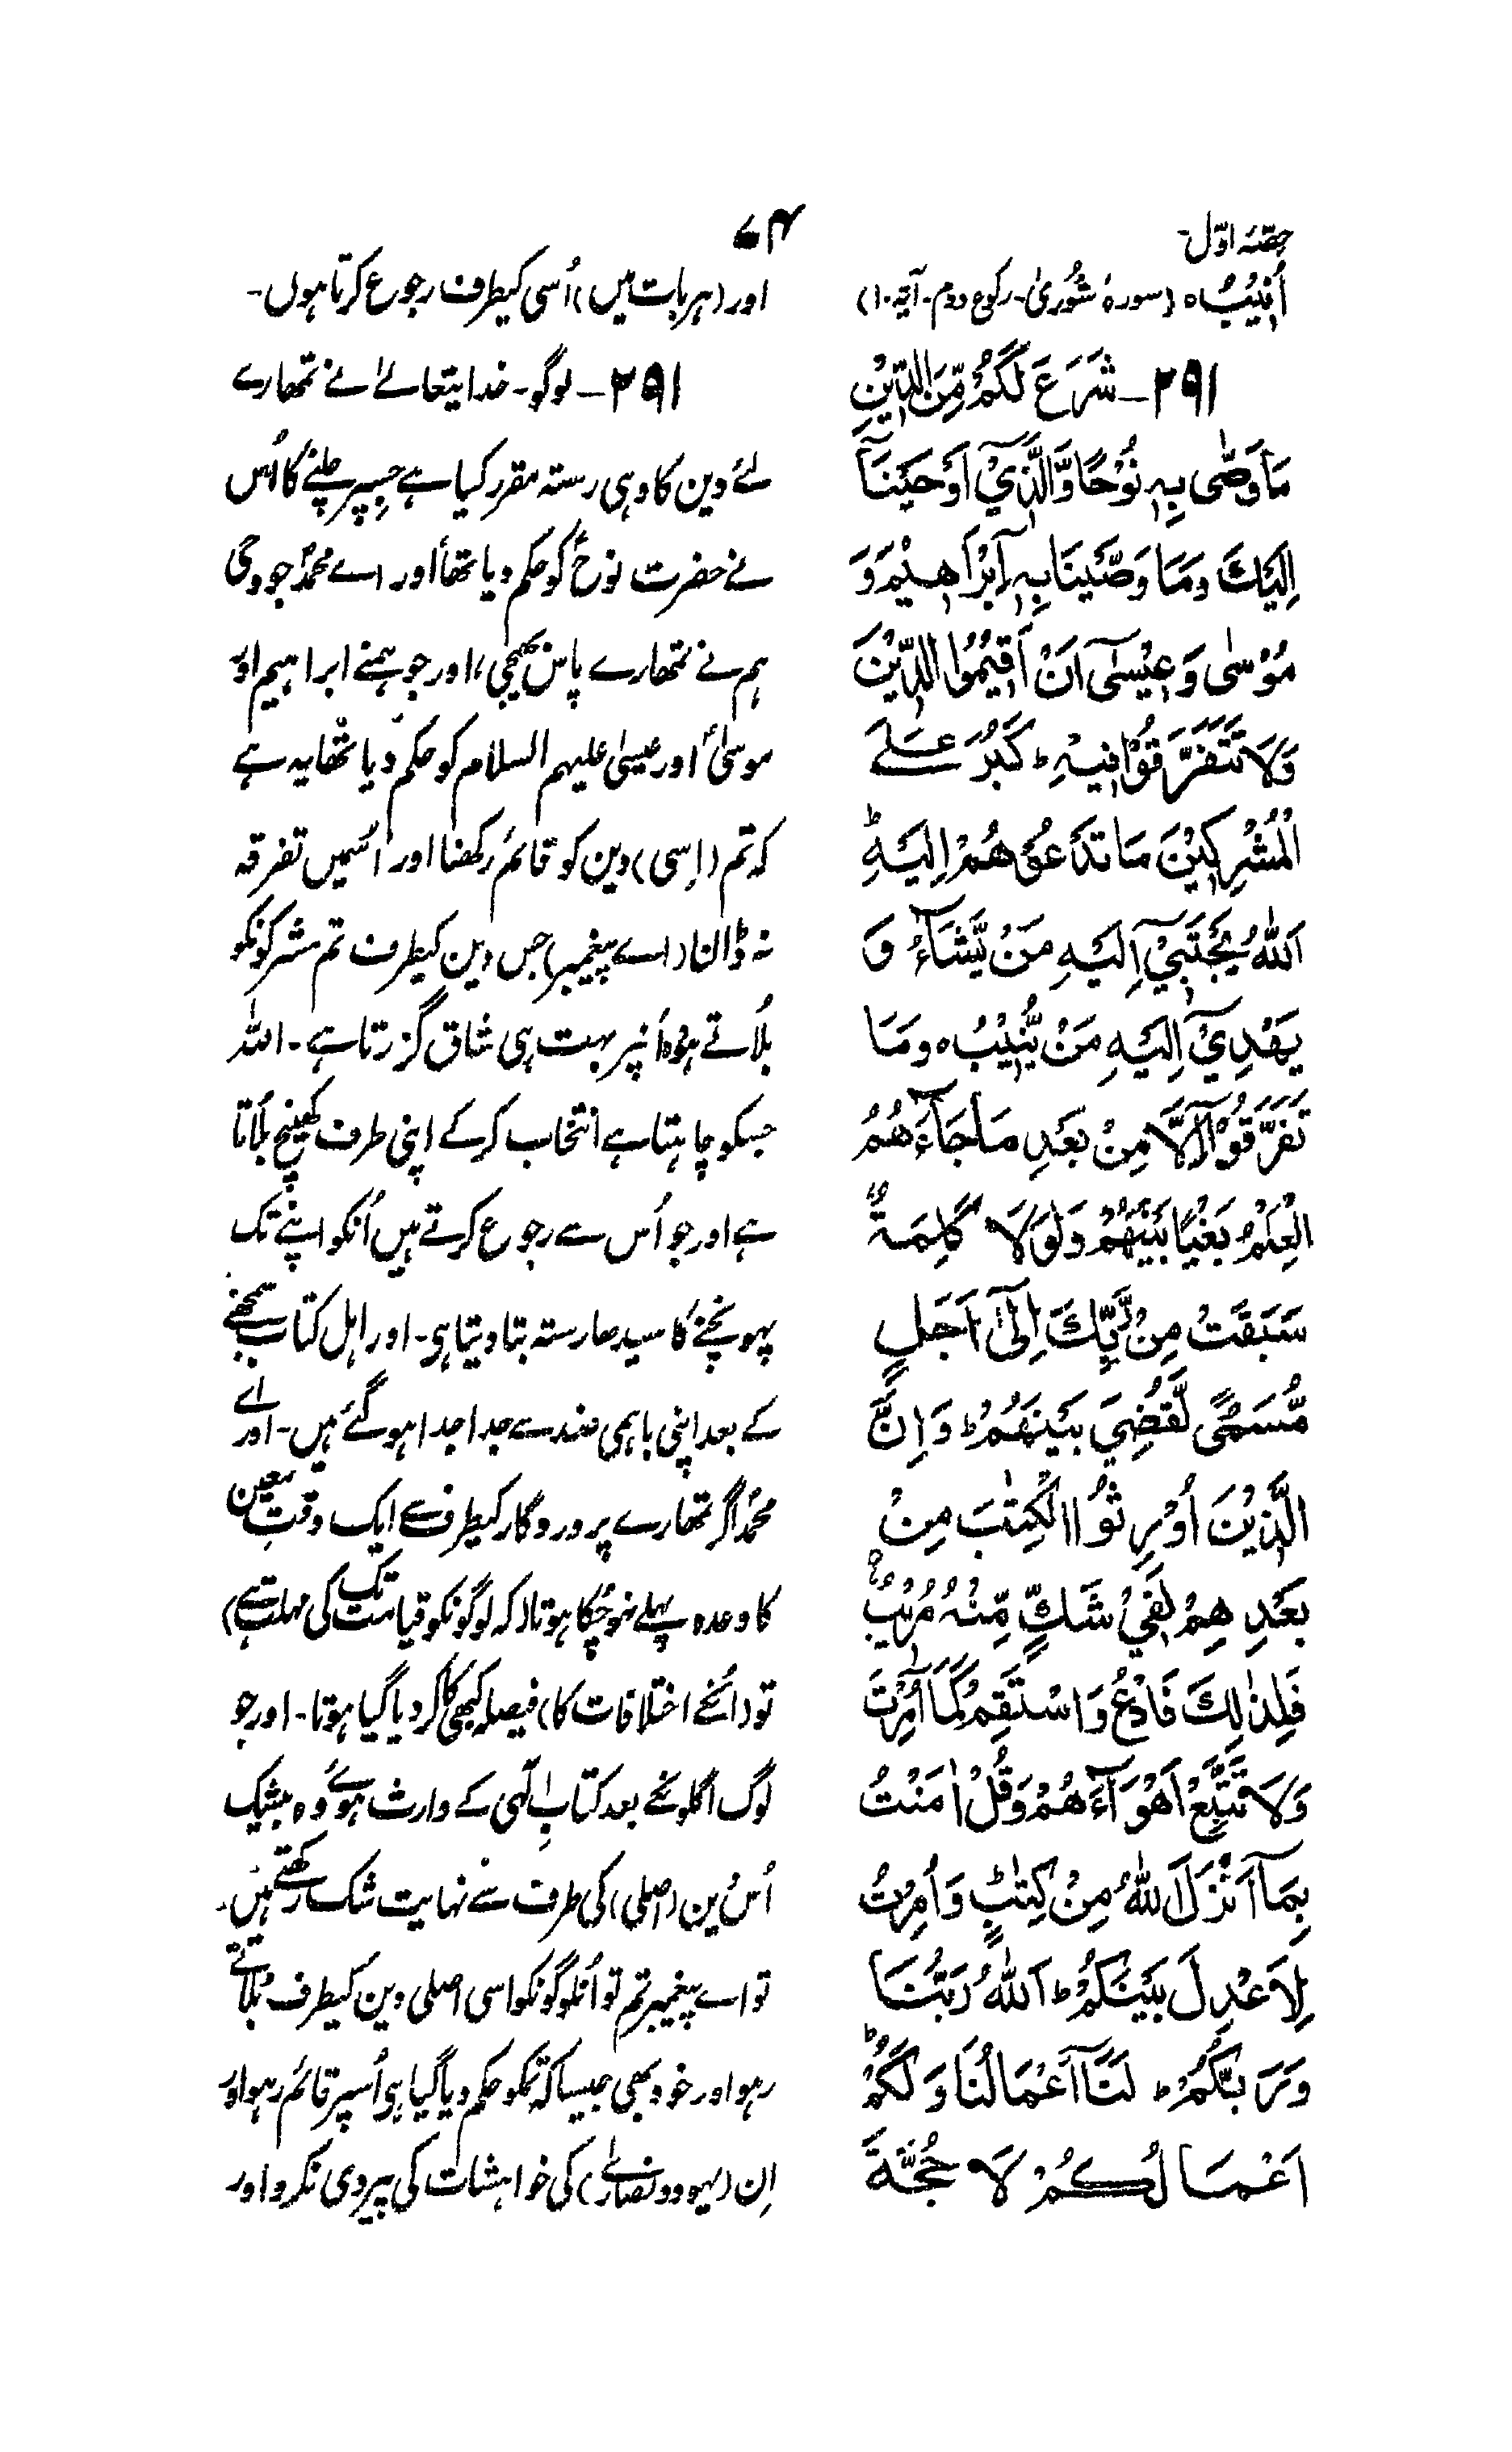 حصّہ اوّل-
۷۴
اُنِيْبُ ہ (سورۂ شُوریٰ- رکوع دوم- آیۃ ۱۰)
۲۹۱- شَرَعَ لَكُمْ مِّنَ الدِّيْنِ
مَا وَصّٰى بِهٖ نُوْحًا وَّالَّذِيْٓ اَوْحَيْنَآ
اِلَيْكَ وَمَا وَصَّيْنَا بِهٖٓ اِبْرَاهِيْمَ وَ
مُوْسٰى وَعِيْسٰٓى اَنْ اَقِيْمُوا الدِّيْنَ
وَلَا تَتَفَرَّقُوْا فِيْهِ ؕ كَبُرَ عَلَے
الْمُشْرِكِيْنَ مَا تَدْعُوْهُمْ اِلَيْهِ ؕ
اَللّٰهُ يَجْتَبِيْٓ اِلَيْهِ مَنْ يَّشَآءُ وَ
يَهْدِيْٓ اِلَيْهِ مَنْ يُّنِيْبُ ہ وَمَا
تَفَرَّقُوْٓا اِلَّا مِنْ بَعْدِ مَا جَآءَهُمُ
الْعِلْمُ بَغْيًا بَيْنَهُمْ وَلَوْلَا كَلِمَةٌ
سَبَقَتْ مِنْ رَّبِّكَ اِلٰٓى اَجَلٍ
مُّسَمًّى لَّقُضِيَ بَيْنَهُمْ ؕ وَاِنَّ
الَّذِيْنَ اُوْرِثُوا الْكِتٰبَ مِنْ
بَعْدِهِمْ لَفِيْ شَكٍّ مِّنْهُ مُرِيْبٌ
فَلِذٰلِكَ فَادْعُ وَاسْتَقِمْ كَمَآ اُمِرْتَ
وَلَا تَتَّبِعْ اَهْوَآءَهُمْ وَقُلْ اٰمَنْتُ
بِمَآ اَنْزَلَ اللّٰهُ مِنْ كِتٰبٍ وَاُمِرْتُ
لِاَعْدِلَ بَيْنَكُمْ ؕ اَللّٰهُ رَبُّنَا
وَرَبُّكُمْ ؕ لَنَآ اَعْمَالُنَا وَلَكُمْ
اَعْمَالُكُمْ لَا حُجَّةَ
اور (ہر بات میں) اُسی کیطرف رجوع کرتا ہوں-
۲۹۱- لوگو- خدا یتعالےٰ نے تمھارے
لئے دین کا وہی رستہ مقرر کیا ہے جسپر چلنے کا اُس
نے حضرت نوحؑ کو حکم دیا تھا اور اے محمدؐ جو وحی
ہم نے تمھارے پاس بھیجی، اور جو ہمنے ابراہیم اور
موسیٰؑ اور عیسیٰ علیہم السلام کو حکم دیا تھا یہ ہے
کہ تم (اِسی) دین کو قائم رکھنا اور اُسمیں تفرقہ
نہ ڈالنا (اے پیغمبر) جس دین کیطرف تم مشرکونکو
بُلاتے ہو وہ اُنپر بہت ہی شاق گزرتا ہے- اللہ
جسکو چاہتا ہے انتخاب کرکے اپنی طرف کھینچ بُلاتا
ہے اور جو اُس سے رجوع کرتے ہیں اُنکو اپنے تک
پہونچنے کا سیدھا رستہ بتا دیتا ہی- اور اہل کتاب سمجھنے
کے بعد اپنی باہمی ضد سے جدا جدا ہو گئے ہیں- اور اے
محمدؐ اگر تمھارے پروردگار کیطرف سے ایک وقتِ معین
کا وعدہ پہلے نہو چُکا ہوتا (کہ لوگونکو قیامت تک کی مہلت ہے)
تو (اُنکے اختلافات کا) فیصلہ کبھی کا کر دیا گیا ہوتا- اور جو
لوگ اگلونکے بعد کتابِ الٰہی کے وارث ہوئے وہ بیشک
اُس دین (اصلی) کی طرف سے نہایت شک رکھتے ہیں-
تو اے پیغمبر تم تو اُنلوگونکو اسی اصلی دین کیطرف بُلاتے
رہو اور خود بھی جیسا کہ تمکو حکم دیا گیا ہی اُسپر قائم رہو اور
اِن (یہود و نصاریٰ) کی خواہشات کی پیروی نکرو اور